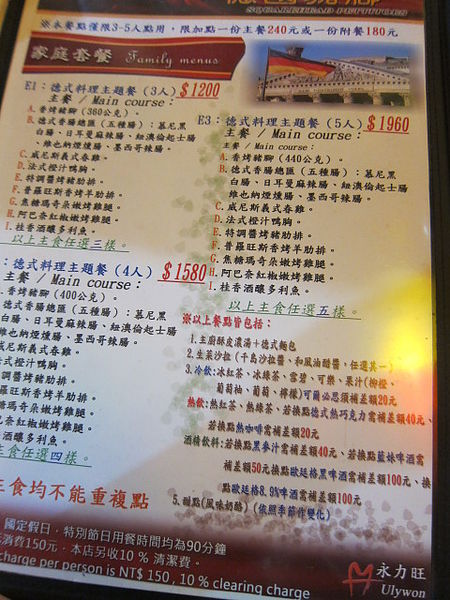 SQUAREHEAD PETTITOES
※本餐點僅限3-5人點用，限加點一份主餐240元或一份附餐180元
家庭套餐 Family menus
E1：德式料理主題餐 (3人) $1200
主餐 / Main course：
A. 香烤豬腳 (360公克)。
B. 德式香腸總匯 (五種腸)：慕尼黑
白腸、日耳曼麻辣腸、紐澳倫起士腸
、維也納煙燻腸、墨西哥辣腸。
C. 威尼斯義式春雞。
D. 法式橙汁鴨胸。
E. 特調醬烤豬肋排。
F. 普羅旺斯香烤羊肋排。
G. 焦糖瑪奇朵嫩烤雞腿。
H. 阿巴奈紅椒嫩烤雞腿。
I. 桂香酒釀多利魚。
以上主食任選三樣。
E3：德式料理主題餐 (5人) $1960
主餐 / Main course：
主餐 / Main course：
A. 香烤豬腳 (440公克)。
B. 德式香腸總匯 (五種腸)：慕尼黑
白腸、日耳曼辣腸、紐澳倫起士腸
、維也納煙燻腸、墨西哥辣腸。
C. 威尼斯義式春雞。
D. 法式橙汁鴨胸。
E. 特調醬烤豬肋排。
F. 普羅旺斯香烤羊肋排。
G. 焦糖瑪奇朵嫩烤雞腿。
H. 阿巴奈紅椒嫩烤雞腿。
I. 桂香酒釀多利魚。
以上主食任選五樣。
：德式料理主題餐 (4人) $1580
主餐 / Main course：
香烤豬腳 (400公克)。
德式香腸總匯 (五種腸)：慕尼黑
白腸、日耳曼辣腸、紐澳倫起士腸
維也納煙燻腸、墨西哥辣腸。
威尼斯義式春雞。
法式橙汁鴨胸。
特調醬烤豬肋排。
普羅旺斯香烤羊肋排。
焦糖瑪奇朵嫩烤雞腿。
阿巴奈紅椒嫩烤雞腿。
桂香酒釀多利魚。
主食任選四樣。
※以上餐點皆包括：
1. 主廚酥皮濃湯+德式麵包
2. 生菜沙拉 (千島沙拉醬、和風油醋醬，任選其一)
3. 冷飲：冰紅茶、冰綠茶、雪碧、可樂、果汁(柳橙、
葡萄柚、葡萄、檸檬)可爾必思須補差額20元
熱飲：熱紅茶、熱綠茶、若換點德式熱巧克力需補差額40元、
若換點熱咖啡需補差額20元
酒精飲料：若換點黑麥汁需補差額40元、若換點藍妹啤酒需
補差額50元換點歐廷格黑啤酒需補差額100元、換
點歐廷格8.9%啤酒需補差額100元
5. 甜點(風味奶酪) (依照季節作變化)
主食均不能重複點
國定假日，特別節日用餐時間均為90分鐘
消費150元，本店另收10 % 清潔費。
charge per person is NT$ 150 , 10 % clearing charge
永力旺
Ulywon